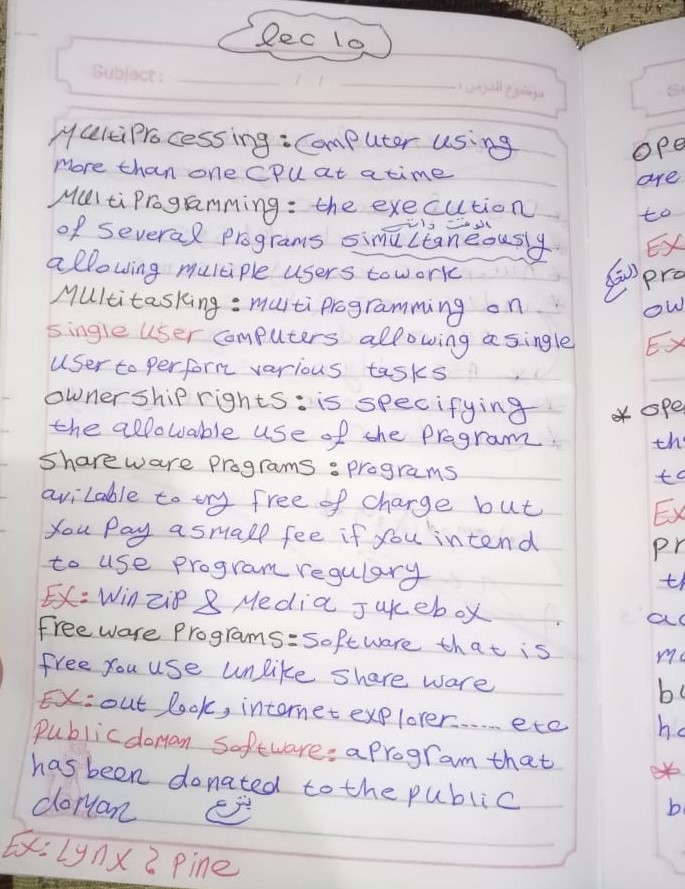 lec 10
Subject: / / موضوع الدرس:
MultiProcessing: Computer using
more than one CPU at a time
Multi Programming: the execution
الوقت
of several Programs simultaneously
allowing multiple users to work
Multitasking: multi Programming on
single user computers allowing a single
user to perform various tasks
ownership rights: is specifying
the allowable use of the Program
shareware Programs: programs
avilable to try free of charge but
you Pay a small fee if you intend
to use program regulary
EX: Winzip & Media Jukebox
freeware Programs: software that is
free you use unlike share ware
EX: out look, internet explorer...... etc
Public doman software: a program that
has been donated to the public
doman
EX: Lynx & Pine
ope
are
to
EX
pro
ow
EX
* ope
th
to
EX
pr
th
ac
mo
bu
ha
*
b